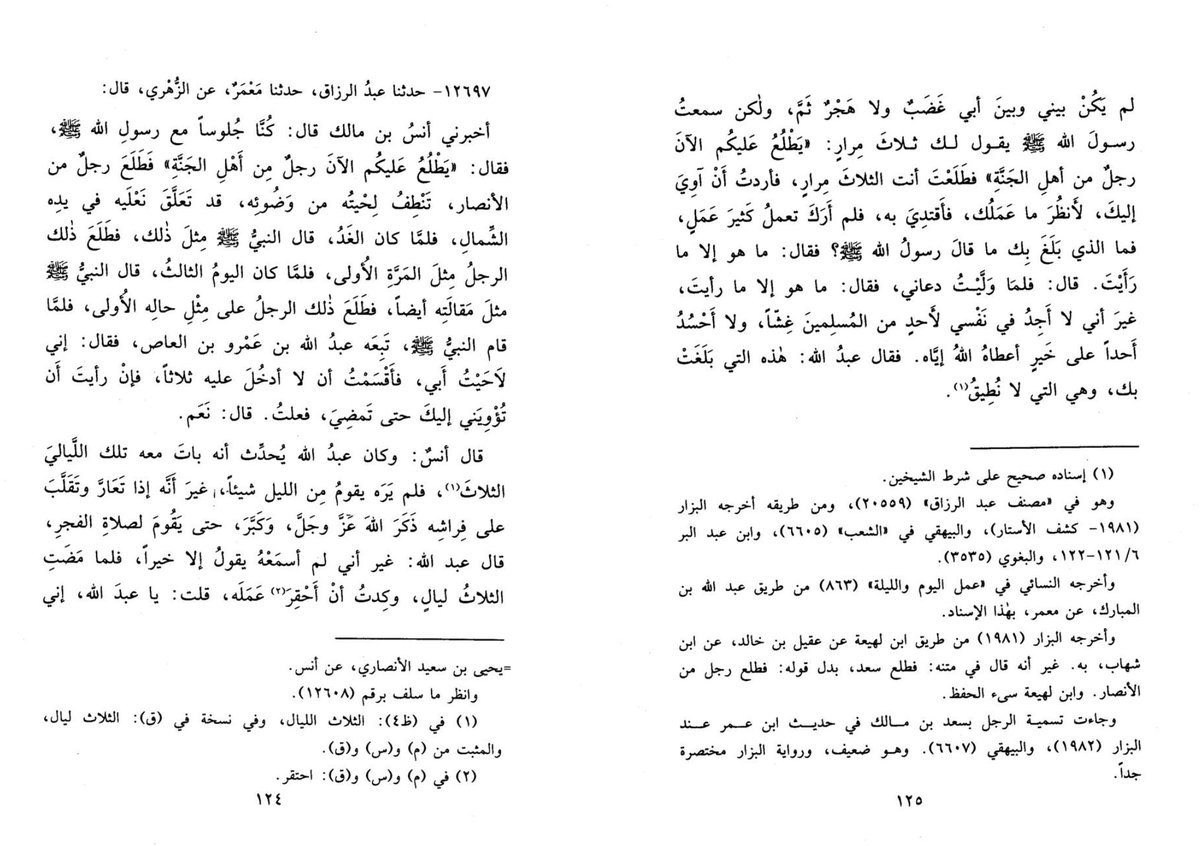 ١٢٦٩٧- حدثنا عبدُ الرزاق، حدثنا مَعْمَرٌ، عن الزُّهْري، قال:
أخبرني أنسُ بن مالك قال: كُنَّا جُلوساً مع رسولِ الله ﷺ،
فقال: «يَطْلُعُ عَليكُم الآنَ رجلٌ مِن أَهْلِ الجَنَّةِ» فَطَلَعَ رجلٌ من
الأنصار، تَنْطِفُ لِحْيتُه من وَضُوئِه، قد تَعَلَّقَ نَعْلَيه في يدِه
الشِّمالِ، فلمَّا كان الغَدُ، قال النبيُّ ﷺ مِثلَ ذٰلك، فطَلَعَ ذٰلك
الرجلُ مِثلَ المَرَّةِ الأُولى، فلمَّا كان اليومُ الثالثُ، قال النبيُّ ﷺ
مثلَ مَقالَتِه أيضاً، فطَلَعَ ذٰلك الرجلُ على مِثْلِ حالِه الأُولى، فلمَّا
قام النبيُّ ﷺ، تَبِعَه عبدُ الله بن عَمْرو بن العاص، فقال: إني
لاَحَيْتُ أَبي، فأَقْسَمْتُ أن لا أدخُلَ عليه ثلاثاً، فإنْ رأيتَ أَن
تُؤْوِيَني إليكَ حتى تَمضِيَ، فعلتُ. قال: نَعَم.
قال أنسٌ: وكان عبدُ الله يُحدِّث أنه باتَ معه تلك اللَّياليَ
الثلاثَ(١)، فلم يَرَه يقومُ مِن الليل شيئاً، غيرَ أنَّه إذا تَعَارَّ وتَقَلَّبَ
على فِراشِه ذَكَرَ اللهَ عَزَّ وجَلَّ، وَكَبَّرَ، حتى يَقُومَ لصلاةِ الفجرِ،
قال عبد الله: غير أني لم أسمَعْهُ يقولُ إلا خيراً، فلما مَضَتِ
الثلاثُ ليالٍ، وكِدتُ أنْ أَحْقِرَ(٢) عَمَلَه، قلت: يا عبدَ الله، إني
=يحيى بن سعيد الأنصاري، عن أنس.
وانظر ما سلف برقم (١٢٦٠٨).
(١) في (ظ٤): الثلاث الليال، وفي نسخة في (ق): الثلاث ليال،
والمثبت من (م) و(س) و(ق).
(٢) في (م) و(س) و(ق): احتقر.
١٢٤
لم يَكُنْ بيني وبينَ أبي غَضَبٌ ولا هَجْرٌ ثَمَّ، ولٰكن سمعتُ
رسولَ الله ﷺ يقول لك ثلاثَ مِرارٍ: «يَطْلُعُ عليكُم الآنَ
رجلٌ من أهلِ الجَنَّةِ» فطَلَعْتَ أنت الثلاثَ مِرارٍ، فأردتُ أَنْ آوِيَ
إليكَ، لَأَنظُرَ ما عَمَلُك، فأَقتدِيَ به، فلم أَرَكَ تعملُ كَثيرَ عَمَلٍ،
فما الذي بَلَغَ بِك ما قالَ رسولُ الله ﷺ؟ فقال: ما هو إلا ما
رَأَيْتَ. قال: فلمَا وَلَّيْتُ دعاني، فقال: ما هو إلا ما رأيتَ،
غيرَ أني لا أَجِدُ في نَفْسي لأَحدٍ من المُسلِمينَ غِشّاً، ولا أَحْسُدُ
أَحداً على خَيرٍ أعطاهُ اللهُ إيَّاه. فقال عبدُ الله: هٰذه التي بَلَغَتْ
بك، وهي التي لا نُطِيقُ(١).
(١) إسناده صحيح على شرط الشيخين.
وهو في «مصنف عبد الرزاق» (٢٠٥٥٩)، ومن طريقه أخرجه البزار
(١٩٨١- كشف الأستار)، والبيهقي في «الشعب» (٦٦٠٥)، وابن عبد البر
٦/١٢١-١٢٢، والبغوي (٣٥٣٥).
وأخرجه النسائي في «عمل اليوم والليلة» (٨٦٣) من طريق عبد الله بن
المبارك، عن معمر، بهٰذا الإسناد.
وأخرجه البزار (١٩٨١) من طريق ابن لهيعة عن عقيل بن خالد، عن ابن
شهاب، به. غير أنه قال في متنه: فطلع سعد، بدل قوله: فطلع رجل من
الأنصار. وابن لهيعة سيء الحفظ.
وجاءت تسمية الرجل بسعد بن مالك في حديث ابن عمر عند
البزار (١٩٨٢)، والبيهقي (٦٦٠٧). وهو ضعيف، ورواية البزار مختصرة
جداً.
١٢٥